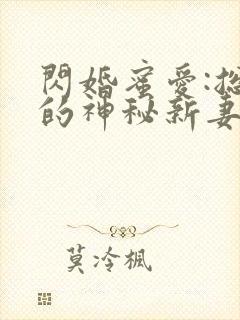 閃婚蜜愛:總
的神秘新妻
莫冷楓